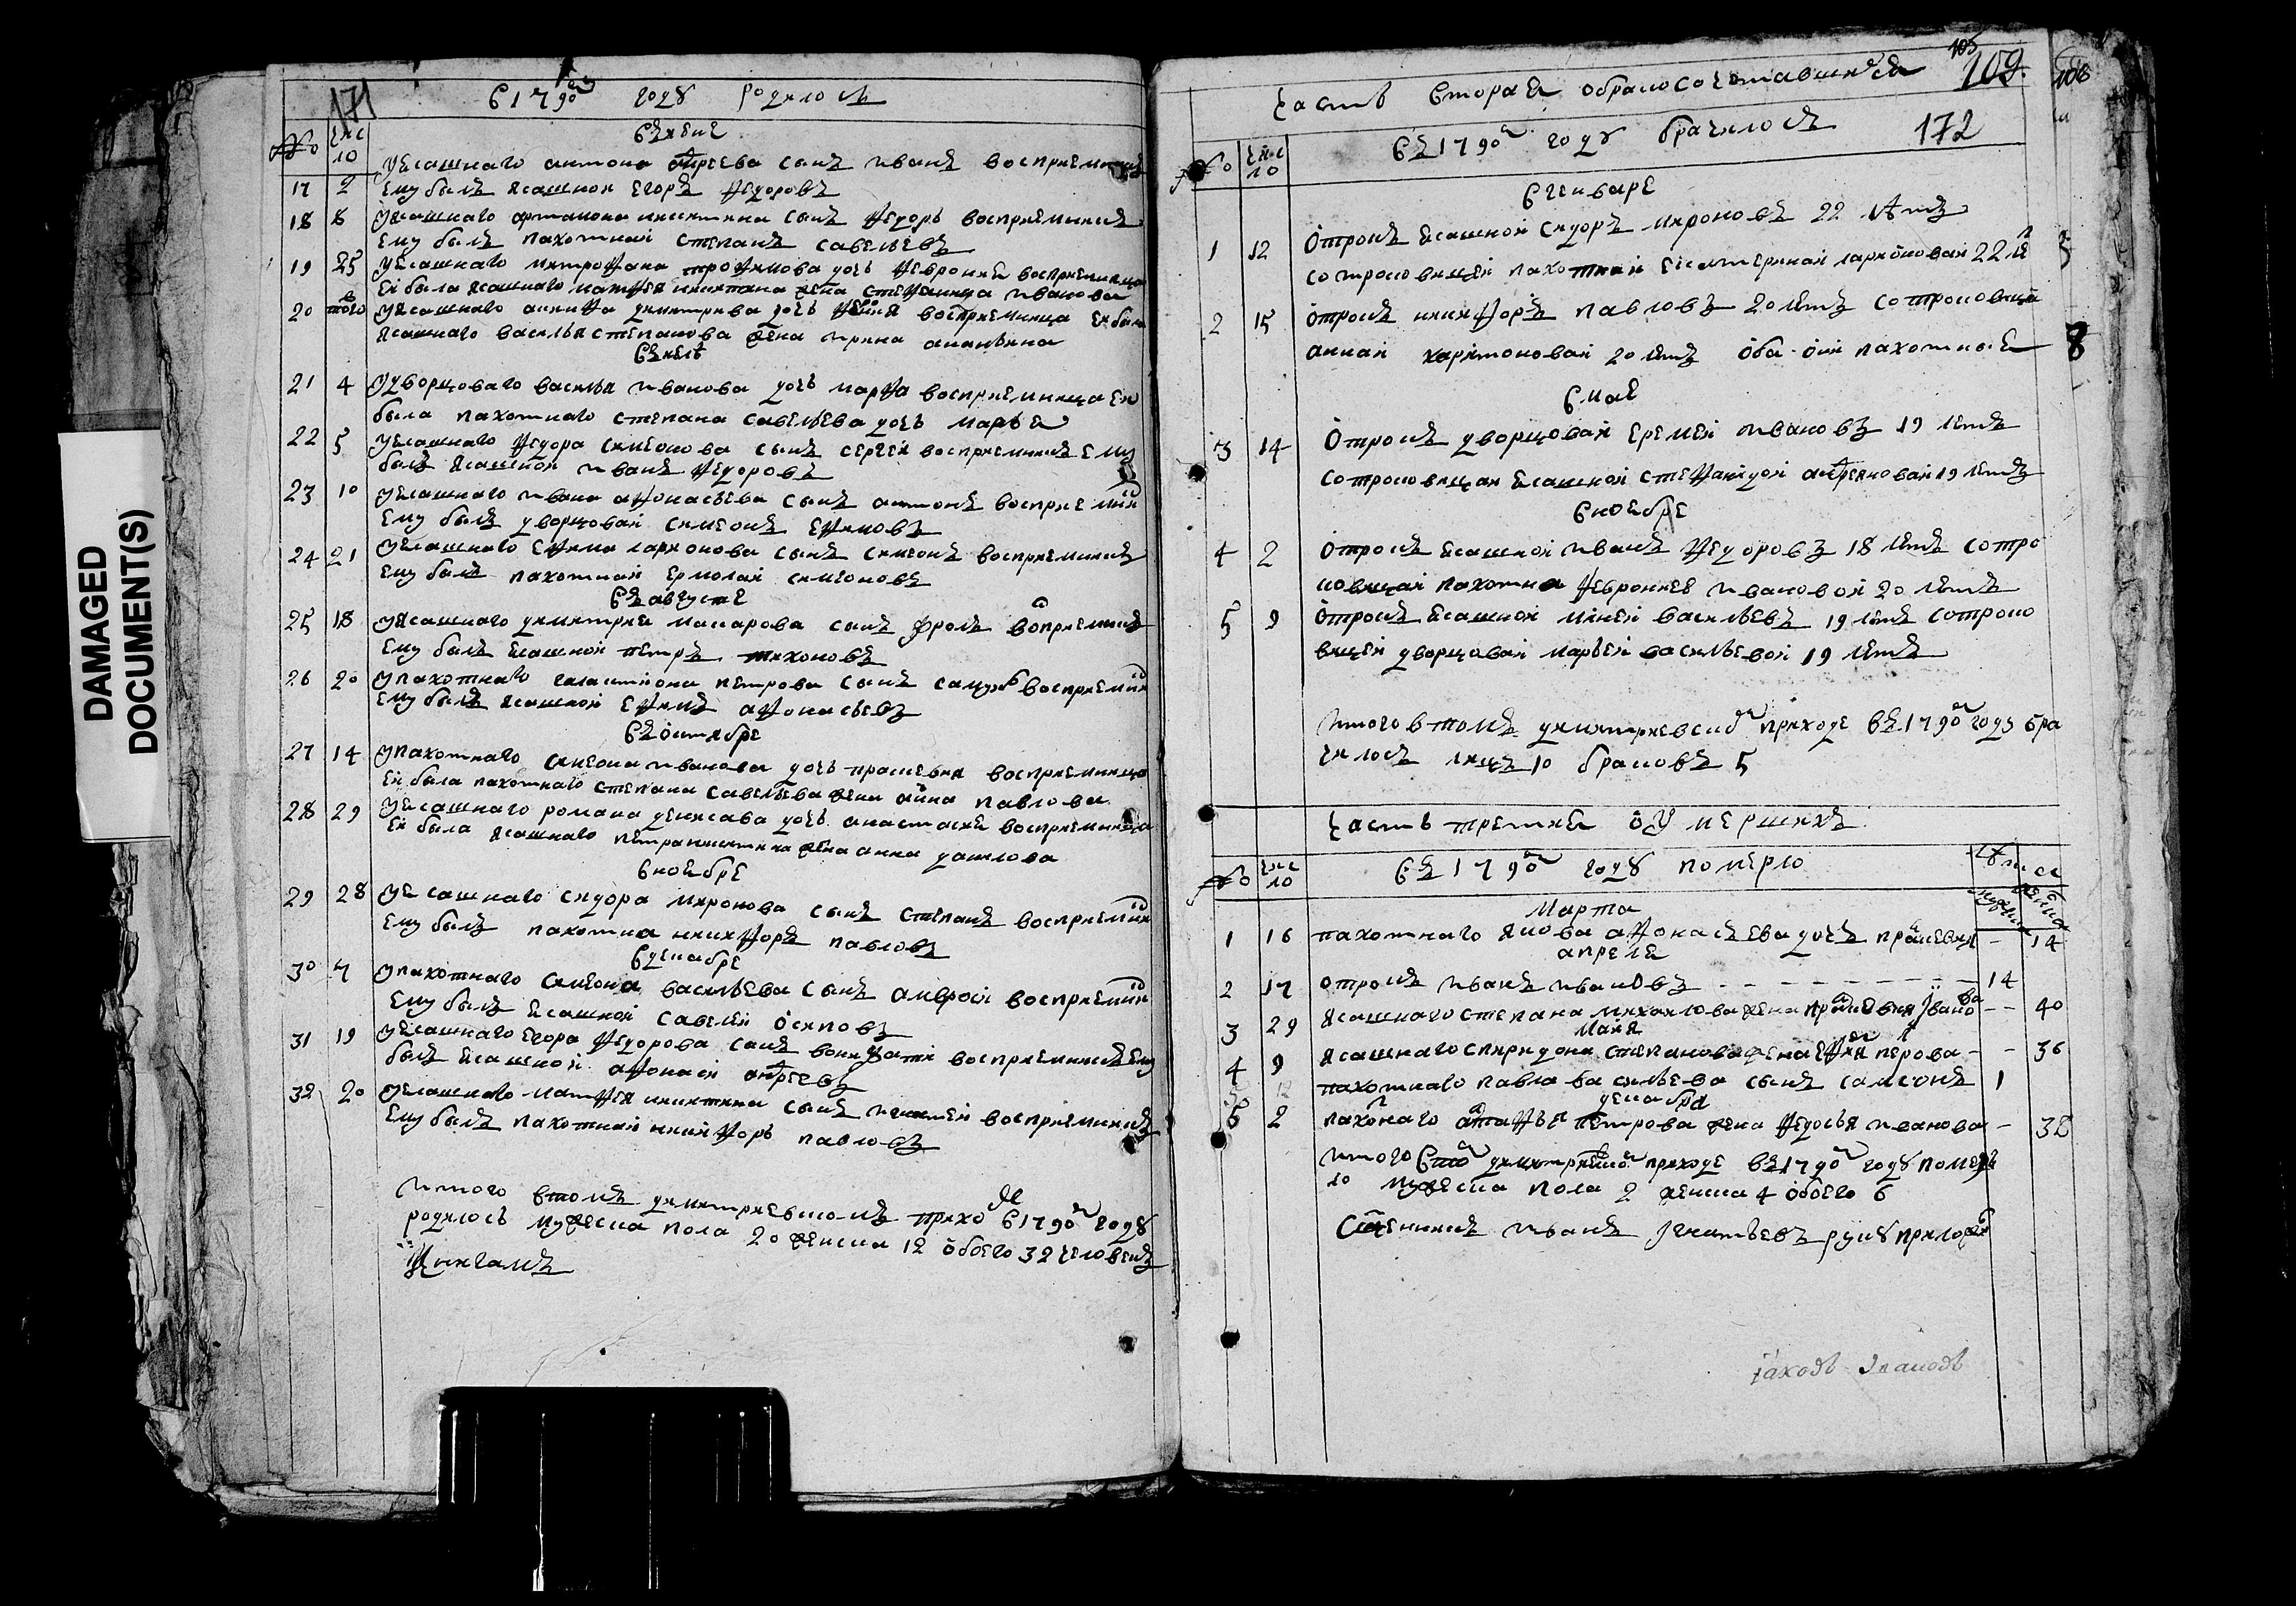 DAMAGED
DOCUMENT(S)
171
в 1790м году родилось
№ число
въ июне
у ясашнаго антона андреева сынъ иванъ восприемникъ
17 2 ему былъ ясашной егоръ федоровъ
18 8 у ясашнаго артамона никитина сынъ федоръ восприемникъ
ему былъ пахотной степанъ савельевъ
19 25 у ясашнаго митрофана трофимова дочь февронія восприемница
ей была ясашнаго матфея никитина жена стефанида иванова
20 того у ясашнаго никиты димитриева дочь восприемница ей была
ясашнаго василья степанова жена ирина ананьина
въ июле
21 4 у дворцоваго василья иванова дочь марфа восприемница ей
была пахотнаго степана савельева дочь марья
22 5 у ясашнаго федора симеонова сынъ сергей восприемникъ ему
былъ ясашной иванъ федоровъ
23 10 у ясашнаго ивана афонасьева сынъ антонъ восприемник
ему былъ дворцовай симеонъ ефимовъ
24 21 у ясашнаго ефима ларионова сынъ симеонъ восприемникъ
ему былъ пахотнай ермолай симеоновъ
въ августе
25 18 у ясашнаго димитрия макарова сынъ фролъ восприемникъ
ему былъ ясашной петръ тихоновъ
26 20 у пахотнаго галактиона петрова сынъ восприемник
ему былъ ясашной ефимъ афонасьевъ
въ октябре
27 14 у пахотнаго симеона иванова дочь прасковия восприемница
ей была пахотнаго степана савельева жена анна павлова
28 29 у ясашнаго романа денисава дочь анастасия восприемница
ей была ясашнаго петра никитина жена анна данилова
в ноябре
29 28 у ясашнаго сидора миронова сынъ степанъ восприемник
ему былъ пахотна никифоръ павловъ
в декабре
30 7 у пахотнаго симеона васильева сынъ амвросій восприемник
ему былъ ясашной савелей осиповъ
31 19 у ясашнаго егора федорова сынъ вонифатій восприемникъ ему
былъ ясашной афонасей андреевъ
32 20 у ясашнаго матфея никитина сынъ игнатей восприемникъ
ему былъ пахотнай никифоръ павловъ
итого в томъ димитриевскомъ приходе в 1790м году
родилось мужеска пола 20 женска 12 обоего 32 человекъ
105
109.
часть вторая о бракосочетавшихся
172
въ 1790м году брачилось
№ число
в генваре
1 12 отрокъ ясашной сидоръ мироновъ 22 летъ
с отроковицей пахотнай екатериной ларионовай 22 ле
2 15 отрокъ никифоръ павловъ 20 летъ с отроковицей
анной харитоновай 20 летъ оба они пахотные
в мае
3 14 отрокъ дворцовай еремей ивановъ 19 летъ
с отроковицей ясашной стефанидой андреяновай 19 летъ
в ноябре
4 2 отрокъ ясашной иванъ федоровъ 18 летъ с отро
ковицай пахотна февронией ивановой 20 летъ
5 9 отрокъ ясашной миней васильевъ 19 летъ с отроко
вицей дворцовай марьей васильевой 19 летъ
итого в томъ димитриевском приходе въ 1790м году бра
чилось лицъ 10 браковъ 5
часть третия о умершихъ
№ число въ 1790м году померло лета
мужска женска
марта
1 16 пахотнаго якова афонасьева дочь прасковия - 14
апреля
2 17 отрокъ иванъ ивановъ 14
3 29 ясашнаго степана михаилова жена прасковия иванова -- 40
майя
4 9 ясашнаго спиридона степанова жена петрова - - 36
пахотнаго павла васильева сынъ самсонъ 1
декабря
6 2 пахотнаго петрова жена федосья иванова - 38
итого в том димитриевском приходе въ 1790м году померло
мужеска пола 2 женска 4 обоего 6
священникъ иванъ игнатьевъ руку приложил
іаковъ ивановъ